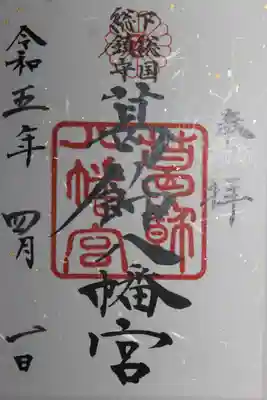 奉拝
下総国
総鎮守
葛飾八幡宮
葛飾
八幡宮
令和五年 四月 一日